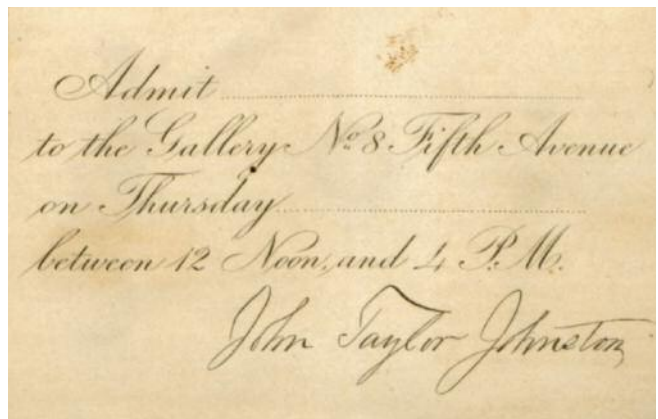 Admit
to the Gallery No. 8 Fifth Avenue
on Thursday
between 12 Noon, and 4 P.M.
John Taylor Johnston